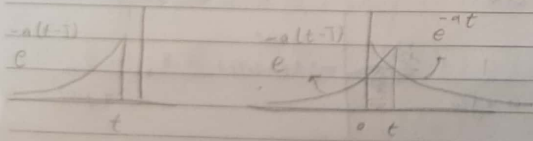 e^{-a(t-T)}
t
e^{-a(t-T)}
e^{-at}
0 t